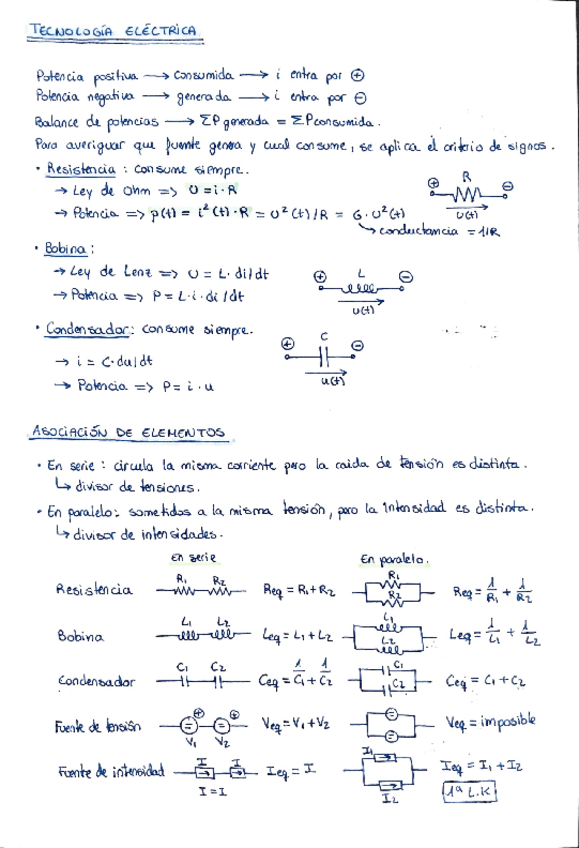 TECNOLOGÍA ELÉCTRICA
Potencia positiva → consumida → i entra por ⊕
Potencia negativa → generada → i entra por ⊖
Balance de potencias → ΣP generada = ΣP consumida.
Para averiguar que fuente genera y cual consume, se aplica el criterio de signos.
• Resistencia: consume siempre.
→ Ley de Ohm => U = i·R
→ Potencia => p(t) = i²(t)·R = U²(t)/R = G·U²(t)
↳ conductancia = 1/R
⊕ R ⊖
U(t)
• Bobina:
→ Ley de Lenz => U = L·di/dt
→ Potencia => P = L·i·di/dt
⊕ L ⊖
U(t)
• Condensador: consume siempre.
→ i = C·du/dt
→ Potencia => P = i·u
⊕ C ⊖
u(t)
ASOCIACIÓN DE ELEMENTOS
• En serie: circula la misma corriente pero la caida de tensión es distinta.
↳ divisor de tensiones.
• En paralelo: sometidos a la misma tensión, pero la intensidad es distinta.
↳ divisor de intensidades.
En serie En paralelo.
Resistencia R1 R2 Req = R1+R2 R1 R2 Req = 1/R1 + 1/R2
Bobina L1 L2 Leq = L1+L2 L1 L2 Leq = 1/L1 + 1/L2
Condensador C1 C2 Ceq = 1/C1 + 1/C2 C1 C2 Ceq = C1+C2
Fuente de tensión ⊕ ⊕ V1 V2 Veq = V1+V2 Veq = imposible
Fuente de intensidad I I I = I Ieq = I I1 I2 Ieq = I1 + I2
1ª L.K